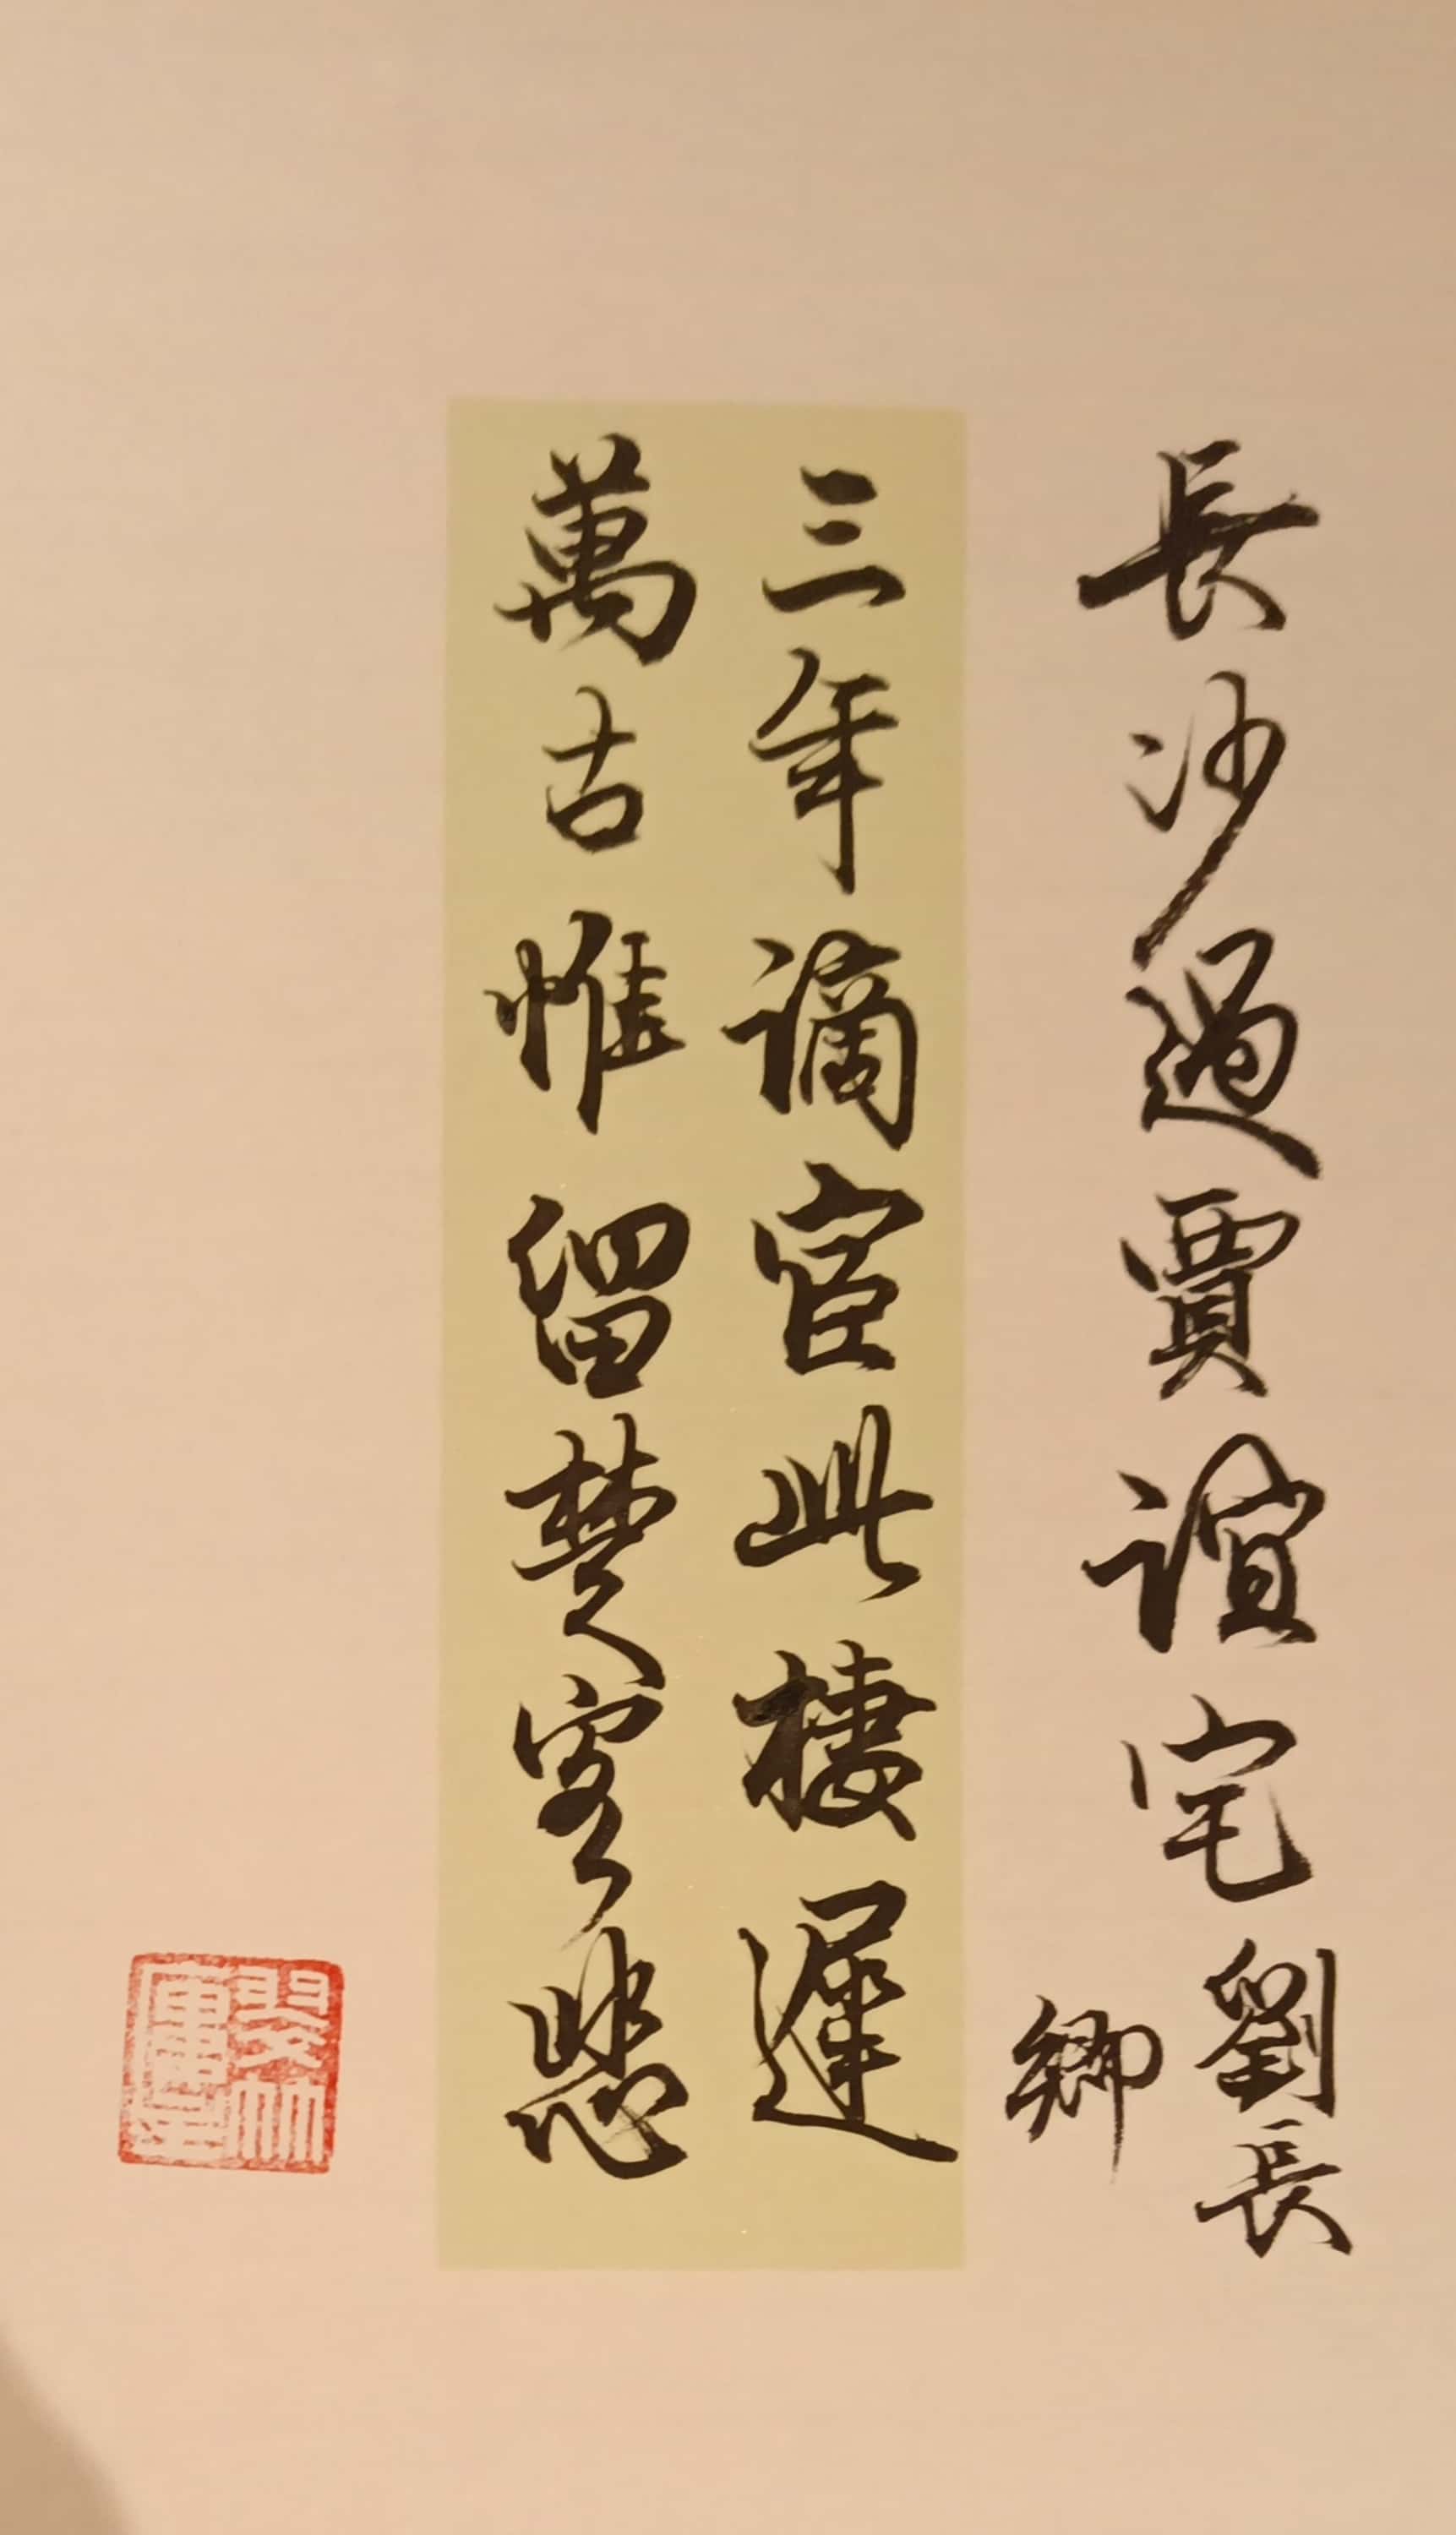 長沙過賈誼宅 劉長
卿
三年謫宦此棲遲
萬古惟留楚客悲